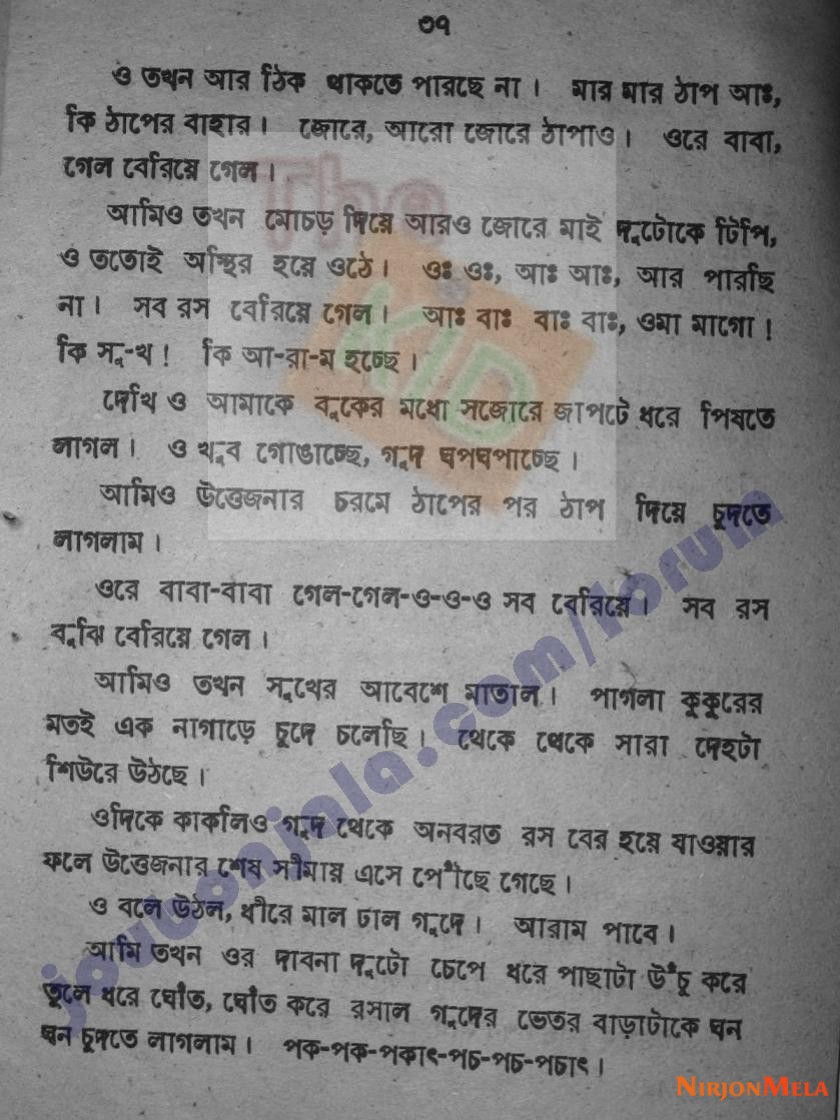 ৩৭
ও তখন আর ঠিক থাকতে পারছে না। মার মার ঠাপ আঃ,
কি ঠাপের বাহার। জোরে, আরো জোরে ঠাপাও। ওরে বাবা,
গেল বেরিয়ে গেল।
আমিও তখন মোচড় দিয়ে আরও জোরে মাই দুটোকে টিপি,
ও ততোই অস্থির হয়ে ওঠে। ওঃ ওঃ, আঃ আঃ, আর পারছি
না। সব রস বেরিয়ে গেল। আঃ বাঃ বাঃ বাঃ, ওমা মাগো!
কি সু-খ! কি আ-রা-ম হচ্ছে।
দেখি ও আমাকে বুকের মধ্যে সজোরে জাপটে ধরে পিষতে
লাগল। ও খুব গোঙাচ্ছে, গুদ ঘপঘপাচ্ছে।
আমিও উত্তেজনার চরমে ঠাপের পর ঠাপ দিয়ে চুদতে
লাগলাম।
ওরে বাবা-বাবা গেল-গেল-ও-ও-ও সব বেরিয়ে। সব রস
বুঝি বেরিয়ে গেল।
আমিও তখন সুখের আবেশে মাতাল। পাগলা কুকুরের
মতই এক নাগাড়ে চুদে চলেছি। থেকে থেকে সারা দেহটা
শিউরে উঠছে।
ওদিকে কাকলিও গুদ থেকে অনবরত রস বের হয়ে যাওয়ার
ফলে উত্তেজনার শেষ সীমায় এসে পৌঁছে গেছে।
ও বলে উঠল, ধীরে মাল ঢাল গুদে। আরাম পাবে।
আমি তখন ওর দাবনা দুটো চেপে ধরে পাছাটা উঁচু করে
তুলে ধরে ঘোঁত, ঘোঁত করে রসাল গুদের ভেতর বাড়াটাকে ঘন
ঘন চুদতে লাগলাম। পক-পক-পকাৎ-পচ-পচ-পচাৎ।
The
KID
jouvonjala.com/forum
NIRJONMELA